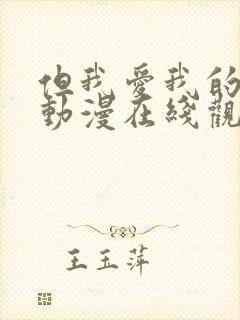 但我愛我的
動漫在綫觀
王玉萍